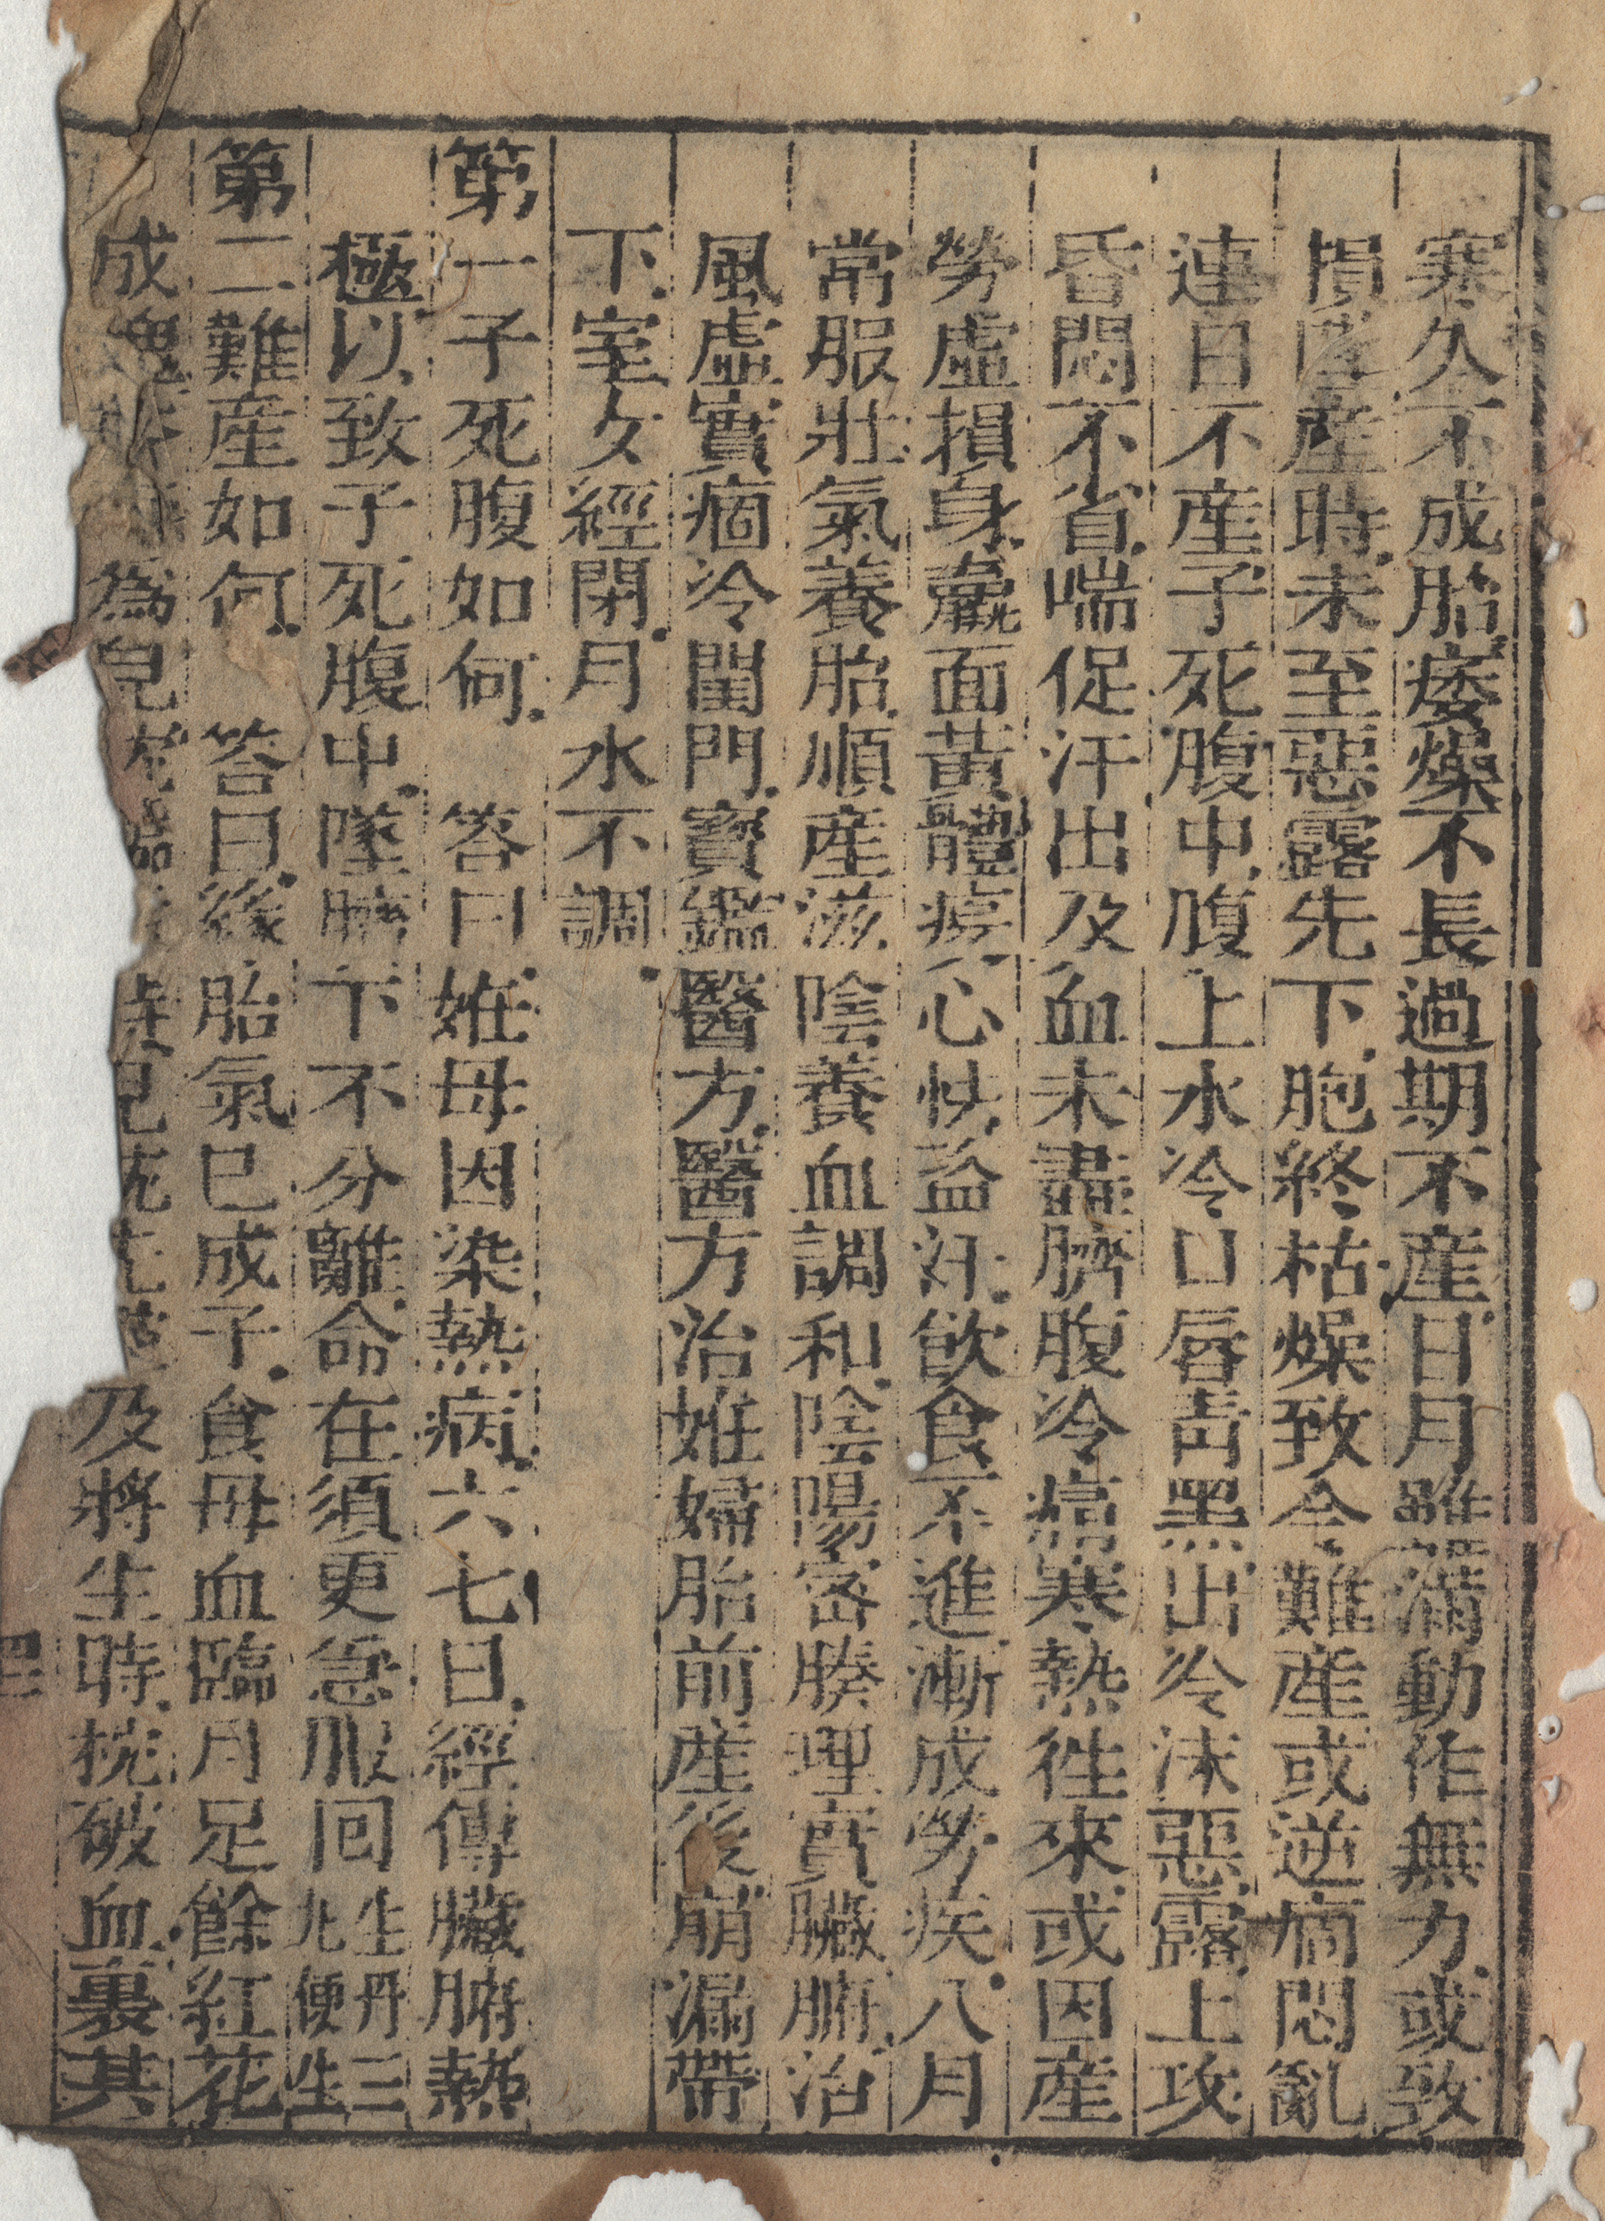 寒久不成胎痿燥不長過期不產日月雖滿動作無力或致
損產時未至惡露先下胞終枯燥致令難產或逆痛悶亂
連日不產子死腹中腹上水冷口唇青黑出冷沫惡露上攻
昏悶不省喘促汗出及血未盡臍腹冷痛寒熱往來或因產
勞虛損身羸面黃體瘦心怯盜汗飲食不進漸成勞疾八月
常服壯氣養胎順產滋陰養血調和陰陽密腠理實臟腑治
風虛實痼冷閨門寶鑑醫方醫方治姙婦胎前產後崩漏帶
下室女經閉月水不調
第一子死腹如何 答曰姙母因染熱病六七日經傳臟腑熱
極以致子死腹中墜臍下不分離命在須更急服回生丹三九便生
第二難產如何 答曰後胎氣已成子食母血臨月足餘紅花
成塊為兒及將生時枕破血裹其
四